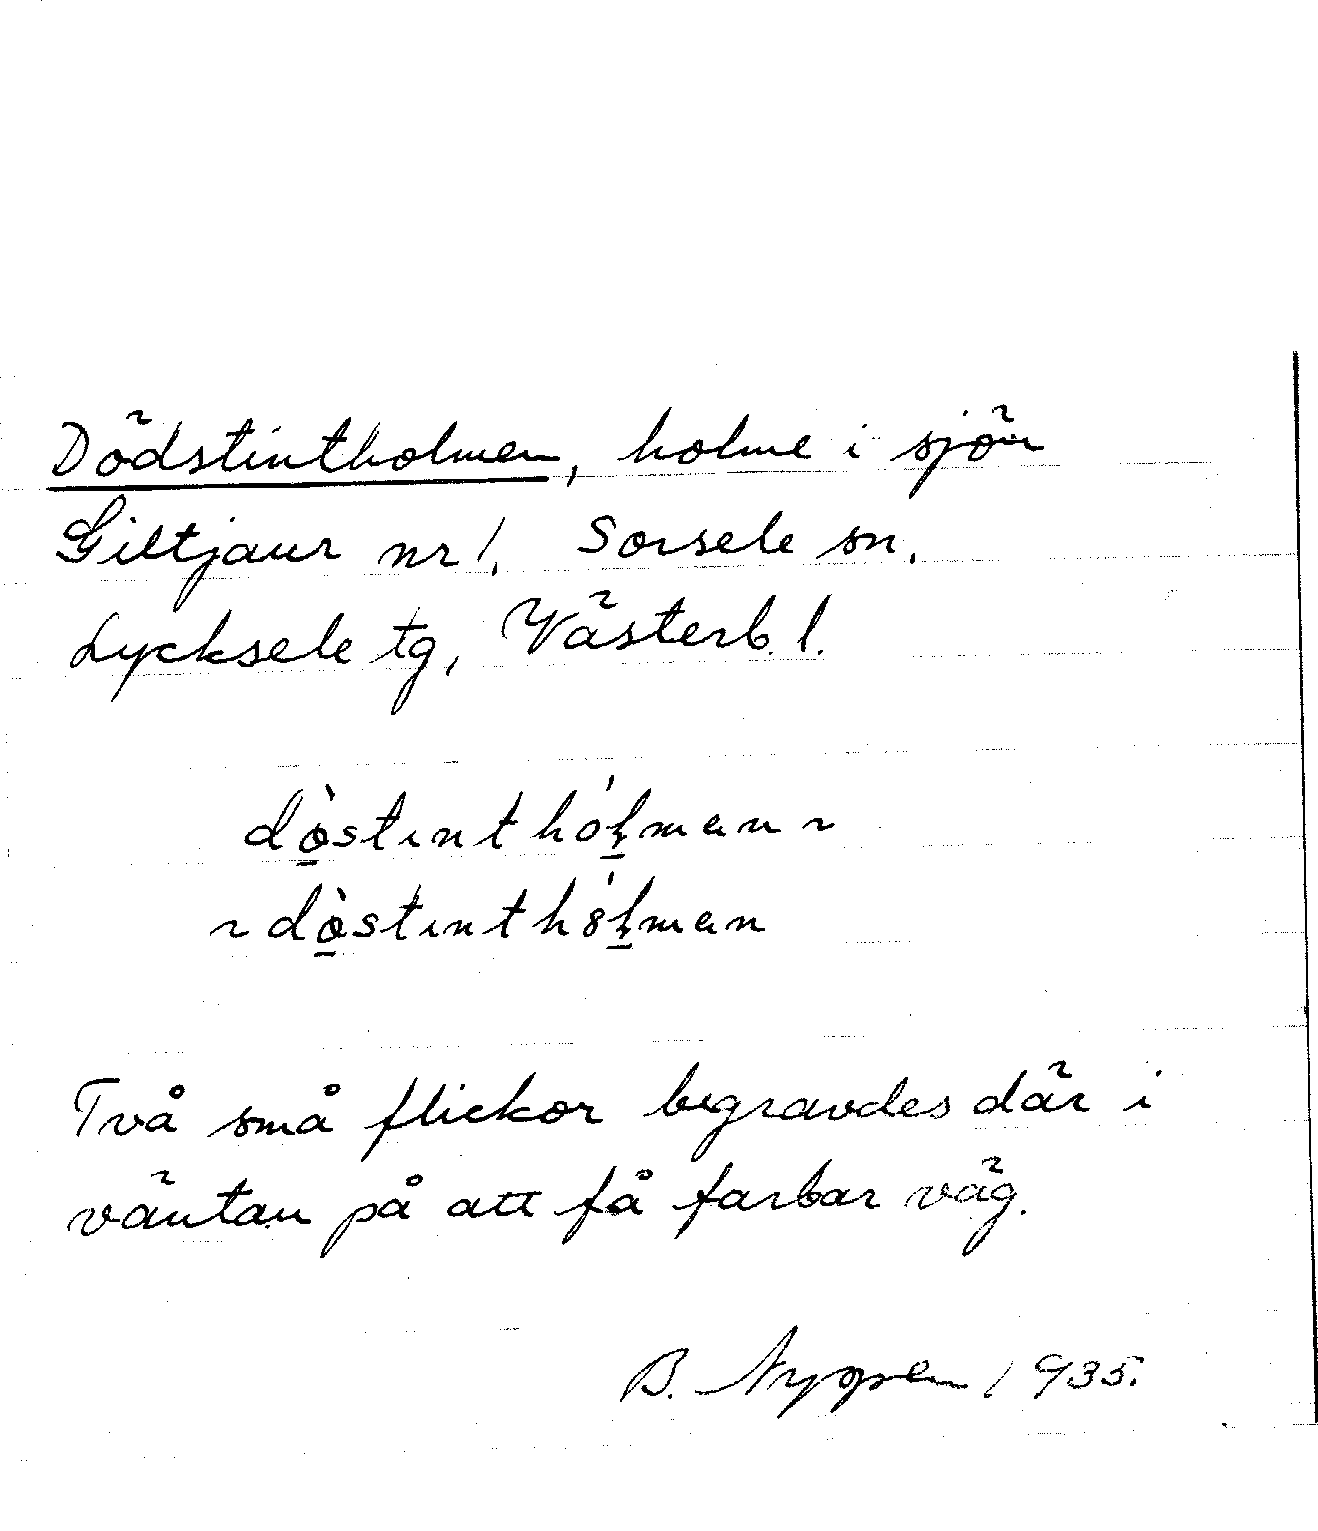 Dödstintholmen, holme i sjön
Giltjaur nr 1. Sorsele sn.
Lycksele tg, Västerb. l.
dö̀stınthólmen ~
~ dö̀stınthólmen
Två små flickor begravdes där i
väntan på att få farbar väg.
B. 1935.